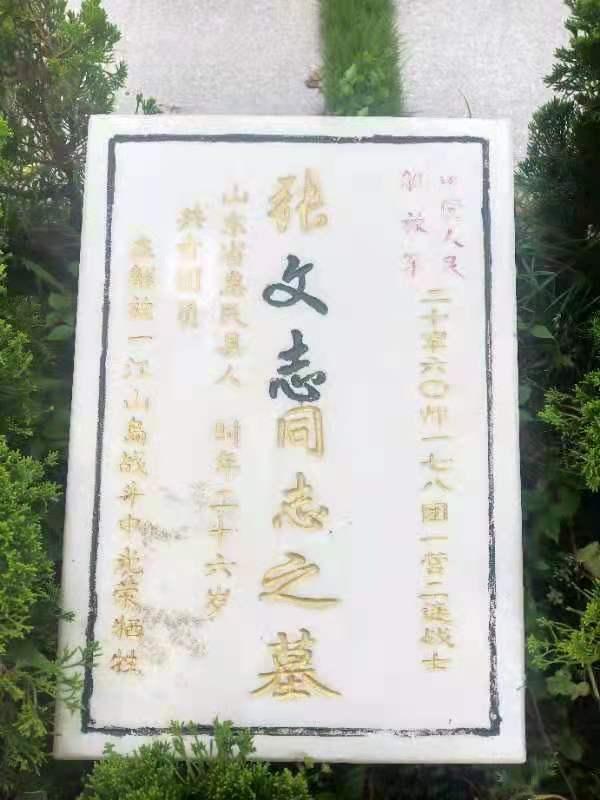 中国人民
解放军
二十军六〇师一七八团一营二连战士
张文志同志之墓
山东省惠民县人 时年二十六岁
共青团员
在解放一江山岛战斗中光荣牺牲